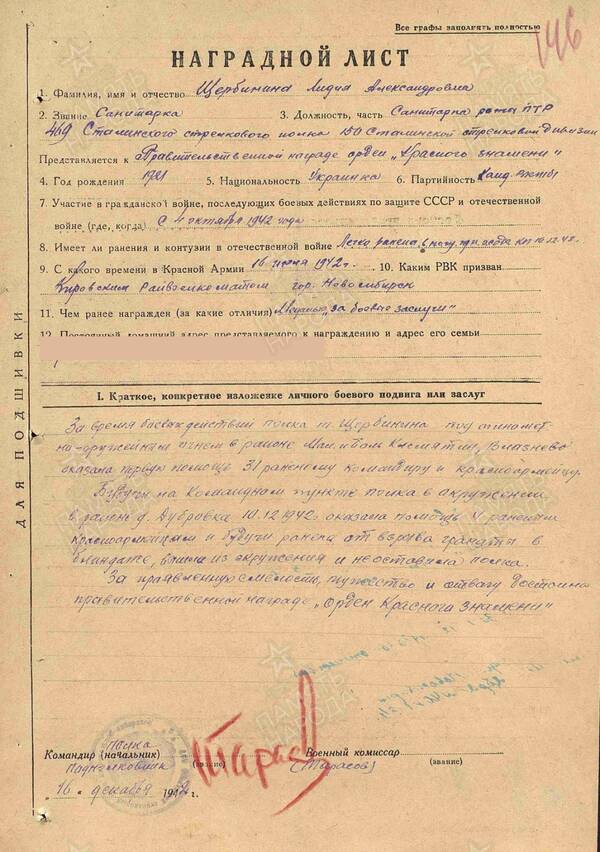 Все графы заполнять полностью
146
НАГРАДНОЙ ЛИСТ
1. Фамилия, имя и отчество Щербинина Лидия Александровна
2. Звание Санитарка 3. Должность, часть Санитарка роты ПТР
469 Сталинского стрелкового полка 150 Сталинской стрелковой дивизии
Представляется к Правительственной награде орден „Красного знамени"
4. Год рождения 1921 5. Национальность Украинка 6. Партийность Канд. ВКП(б)
7. Участие в гражданской войне, последующих боевых действиях по защите СССР и отечественной
войне (где, когда) С 4 октября 1942 года
8. Имеет ли ранения и контузии в отечественной войне Легко ранена в ногу 10.12.42.
9. С какого времени в Красной Армии 16 июня 1942г. 10. Каким РВК призван
Кировским Райвоенкоматом гор. Новосибирск
11. Чем ранее награжден (за какие отличия) Медалью „за боевые заслуги"
12. Постоянный домашний адрес представляемого к награждению и адрес его семьи
ДЛЯ ПОДШИВКИ
I. Краткое, конкретное изложение личного боевого подвига или заслуг
За время боевых действий полка т. Щербинина под
огнем в районе
оказала первую помощь 31 раненому командиру и красноармейцу.
Будучи на Командном пункте полка в окружении
в районе д. Дубровка 10.12.1942г. оказала помощь 4 раненым
Красноармейцам и будучи ранена от взрыва гранаты в
блиндаже, вышла из окружения и неоставила полка.
За проявленную смелость, мужество и отвагу достойна
правительственной награде „Орден Красного знамени"
Командир (начальник) полка
Подполковник
(звание)
Тарас
Военный комиссар
(Тарасов) (звание)
16 декабря 1942 г.
ПАМЯТЬ НАРОДА